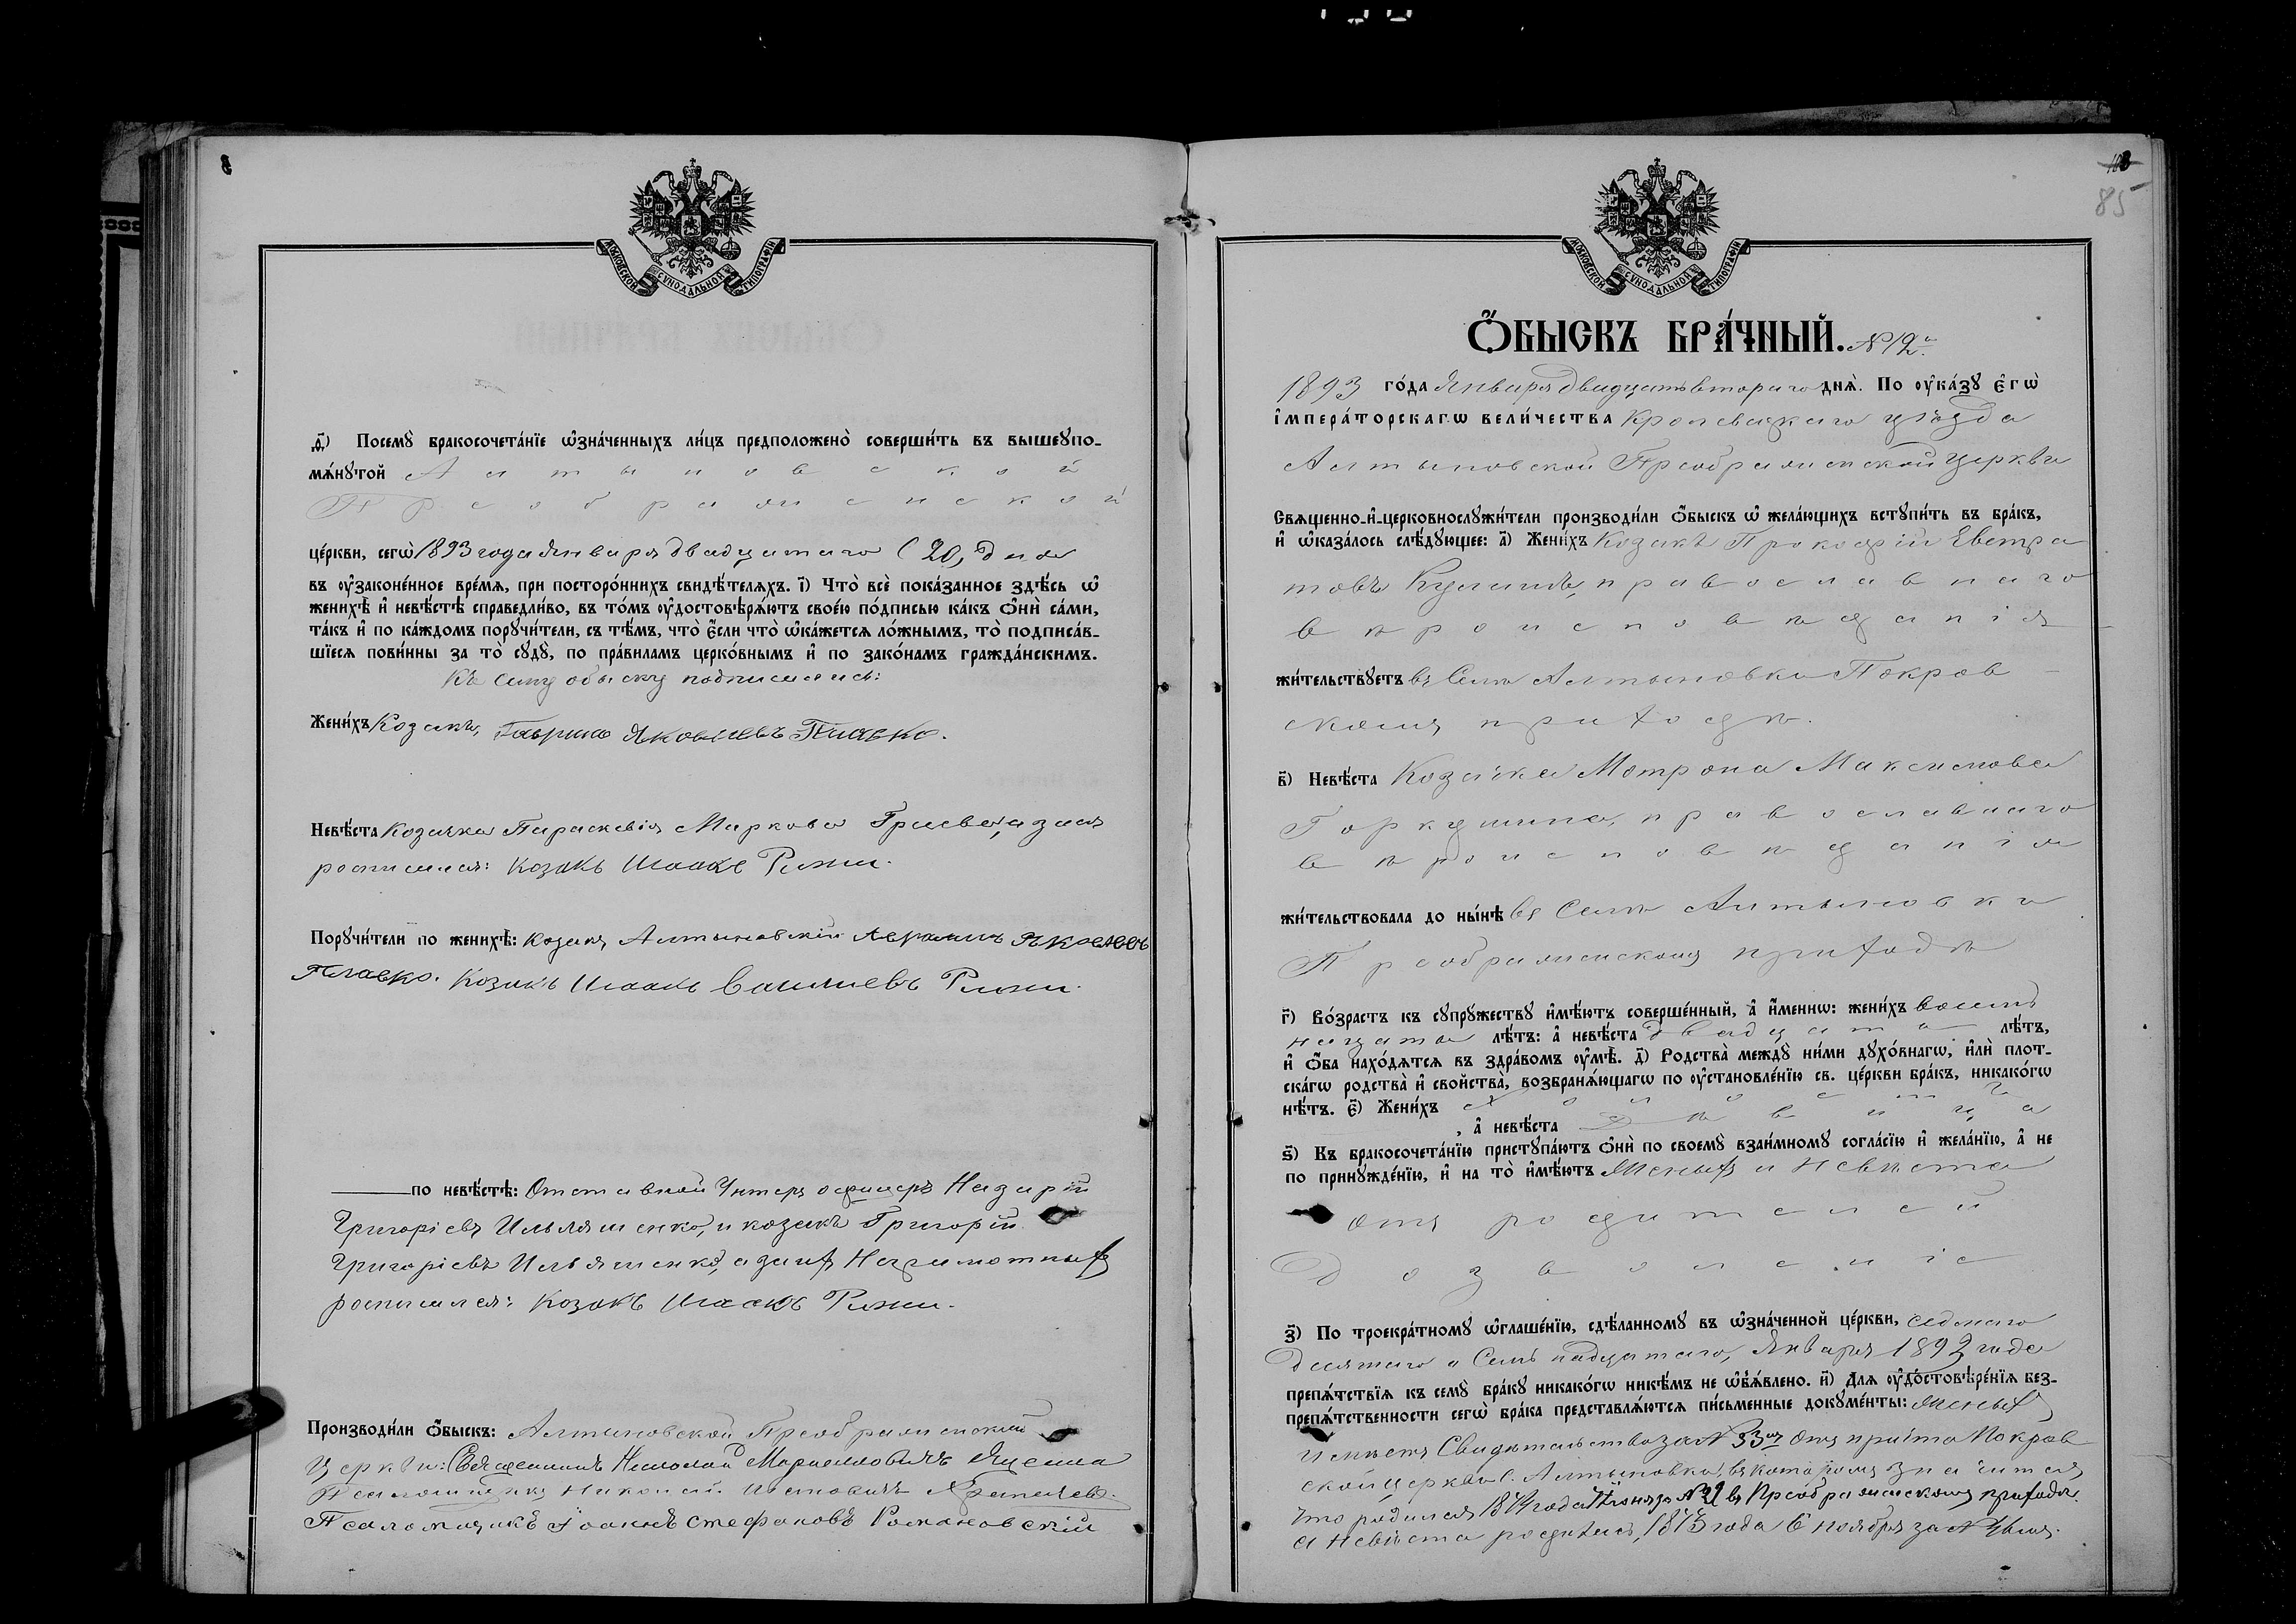 МОСКОВСКОЙ СУНОДАЛЬНОЙ ТИПОГРАФІИ
.ѳ҃) Посемꙋ̀ бракосочета́нїе ѡ҆зна́ченныхъ ли́цъ предположено̀ соверши́ть въ вышеꙋпо-
мѧ́нꙋтой Алтыновской
Преображенской
це́ркви, сегѡ̀ 1893 года Января двадцатаго (20) дня
въ ᲂу҆законе́нное вре́мѧ, при посторо́ннихъ свидѣ́телѧхъ. і҃) Что̀ всѐ пока́занное здѣ́сь ѡ҆
женихѣ̀ и҆ невѣ́стѣ справедли́во, въ то́мъ ᲂу҆достовѣрѧ́ютъ свое́ю по́дписью ка́къ ѻ҆нѝ са́ми,
та́къ и҆ по ка́ждомъ порꙋчи́тели, съ тѣ́мъ, что̀ є҆́сли что̀ ѡ҆ка́жетсѧ ло́жнымъ, то̀ подписа́в-
шїесѧ пови́нны за то̀ сꙋдꙋ̀, по пра́виламъ церко́внымъ и҆ по зако́намъ гражда́нскимъ.
Къ сему обыску подписались:
Жени́хъ Козакъ, Гаврило Яковлевъ Плавко.
Невѣ́ста Козачка Параскевія Маркова Гриева, а за нея
росписался: Козакъ Исаакъ
Порꙋчи́тели по женихѣ̀: Козакъ Алтыновскій Авраамъ Яковлевъ
Плавко. Козакъ Исаакъ Василиевъ
по невѣ́стѣ: Отставной Унтеръ офицеръ Назарій
Григоріевъ Ильяшенко, и козакъ Григорій
Григоріевъ Ильяшенко, а за них Неграмотных
росписался: Козакъ Исаакъ
Производи́ли ѻ҆́быскъ: Алтыновской Преображенской
Церкви: Священникъ Николай
Псаломщикъ
Псаломщикъ Іоаннъ Стефановъ Романовскій
85
МОСКОВСКОЙ СУНОДАЛЬНОЙ ТИПОГРАФІИ
Ѻ҆́БЫСКЪ БРА́ЧНЫЙ. № 12й.
1893 го́да Января двадцать втораго днѧ̀. По ᲂу҆ка́зꙋ є҆гѡ̀
і҆мпера́торскагѡ вели́чества Кролевецкаго уѣзда
Алтыновской Преображенской Церкви
Свѧщенно-и҆-церковнослꙋжи́тели производи́ли ѻ҆́быскъ ѡ҆ жела́ющихъ встꙋпи́ть въ бра́къ,
и҆ ѡ҆каза́лось слѣ́дꙋющее: а҃) Жени́хъ Козакъ Прокофій Евстра
товъ православнаго
вѣроисповѣданія
жи́тельствꙋетъ въ Селѣ Алтыновки Покров
скомъ приходѣ.
в҃) Невѣ́ста Козачка Мотрона Максимова
Горкушина, православнаго
вѣроисповѣданія
жи́тельствовала до ны́нѣ въ Селѣ Алтыновки
Преображенскомъ приходѣ
г҃) Во́зрастъ къ сꙋпрꙋ́жествꙋ и҆мѣ́ютъ соверше́нный, а҆ и҆́меннѡ: жени́хъ восем
надцать лѣ́тъ: а҆ невѣ́ста двадцать лѣ́тъ,
и҆ ѻ҆́ба нахо́дѧтсѧ въ здра́вомъ ᲂу҆мѣ̀. д҃) Родства̀ междꙋ̀ ни́ми дꙋхо́внагѡ, и҆лѝ плот-
ска́гѡ родства̀ и҆ свойства̀, возбранѧ́ющагѡ по ᲂу҆становле́нїю св. це́ркви бра́къ, никако́гѡ
нѣ́тъ. є҃) Жени́хъ холостъ
, а҆ невѣ́ста дѣвица
ѕ҃) Къ бракосочета́нїю пристꙋпа́ютъ ѻ҆нѝ по своемꙋ̀ взаи́мномꙋ согла́сїю и҆ жела́нїю, а҆ не
по принꙋжде́нїю, и҆ на то̀ и҆мѣ́ютъ Жених и Невѣста
отъ родителей
дозволеніе
з҃) По троекра́тномꙋ ѡ҆глаше́нїю, сдѣ́ланномꙋ въ ѡ҆зна́ченной це́ркви, седмаго
десятаго и Семьнадцатаго, Января 1893 года
препѧ́тствїѧ къ семꙋ̀ бра́кꙋ никако́гѡ никѣ́мъ не ѡ҆б̾ѧ́влено. и҃) Длѧ ᲂу҆достовѣре́нїѧ без-
препѧ́тственности сегѡ̀ бра́ка представлѧ́ютсѧ пи́сьменные докꙋме́нты: Жених
имѣетъ Свидѣтельство за № 33мъ отъ причта Покров
ской церкви с. Алтыновки, въ которомъ значится
что родился года Іюня за № въ Преображенскомъ приходѣ.
а Невѣста родилась, 1873 года 6 ноября за №